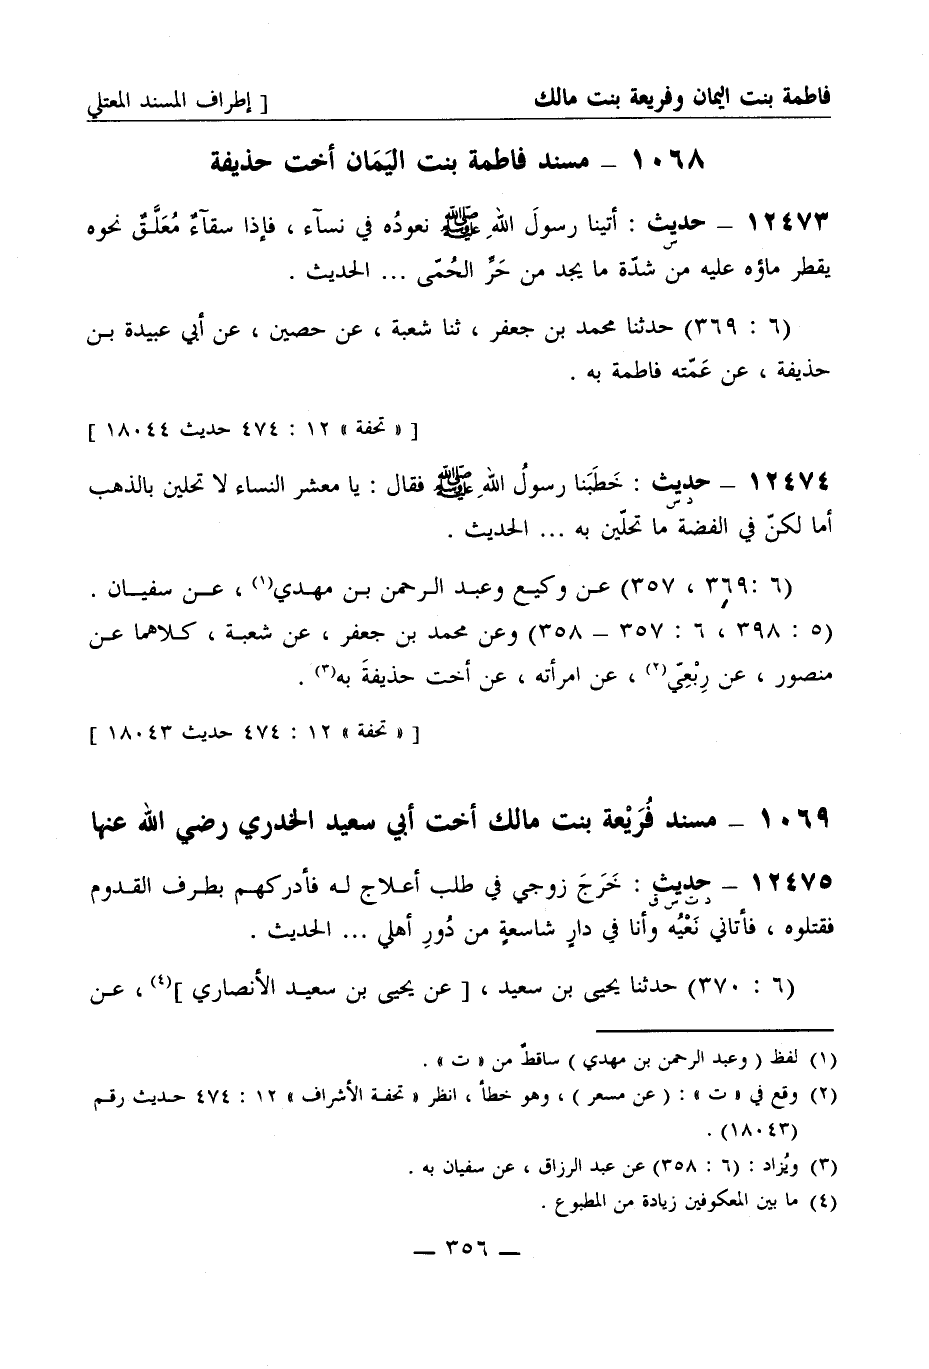 فاطمة بنت اليمان وفريعة بنت مالك [ إطراف المسند المعتلي
١٠٦٨ ـ مسند فاطمة بنت اليَمَان أخت حذيفة
١٢٤٧٣ ـ حديث : أتينا رسولَ اللهِ ﷺ نعودُه في نسآء ، فإذا سقآءٌ مُعَلَّقٌ نحوه
س
يقطر ماؤه عليه من شدّة ما يجد من حَرِّ الحُمّى ... الحديث .
(٦ : ٣٦٩) حدثنا محمد بن جعفر ، ثنا شعبة ، عن حصين ، عن أبي عبيدة بـن
حذيفة ، عن عَمّته فاطمة به .
[ « تحفة » ١٢ : ٤٧٤ حديث ١٨٠٤٤ ]
١٢٤٧٤ ـ حديث : خَطَبَنا رسولُ اللهِ ﷺ فقال : يا معشر النساء لا تحلين بالذهب
د س
أما لكنّ في الفضة ما تحلّين به ... الحديث .
(٦ :٣٦٩ ، ٣٥٧) عـن وكيـع وعبـد الـرحمن بـن مهـدي(١) ، عـن سفيـان .
(٥ : ٣٩٨ ، ٦ : ٣٥٧ ـ ٣٥٨) وعن محمد بن جعفر ، عن شعبـة ، كـلاهما عـن
منصور ، عن رِبْعِيّ(٢) ، عن امرأته ، عن أخت حذيفةَ به(٣) .
[ « تحفة » ١٢ : ٤٧٤ حديث ١٨٠٤٣ ]
١٠٦٩ ـ مسند فُرَيْعة بنت مالك أخت أبي سعيد الخدري رضي الله عنها
١٢٤٧٥ ـ حديث : خَرَجَ زوجي في طلب أعـلاج لـه فأدركهـم بطـرف القـدوم
د ت س ق
فقتلوه ، فأتاني نَعْيُه وأنا في دارٍ شاسعةٍ من دُورِ أهلي ... الحديث .
(٦ : ٣٧٠) حدثنا يحيى بن سعيد ، [ عن يحيى بن سعيـد الأنصاري ](٤) ، عـن
(١) لفظ ( وعبد الرحمن بن مهدي ) ساقطٌ من « ت » .
(٢) وقع في « ت » : ( عن مسعر ) ، وهو خطأ ، انظر « تحفـة الأشراف » ١٢ : ٤٧٤ حـديث رقـم
(١٨٠٤٣) .
(٣) ويُزاد : (٦ : ٣٥٨) عن عبد الرزاق ، عن سفيان به .
(٤) ما بين المعكوفين زيادة من المطبوع .
ـ ٣٥٦ ـ